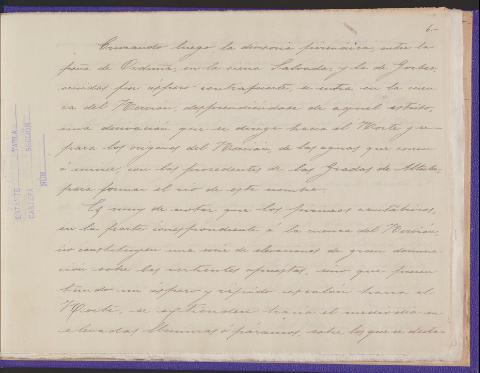 6-
Cruzando luego la divisoria pirenáica, entre la
peña de Orduña, en la sierra Salvada, y la de Gorbea,
unidas por áspero contrafuerte, se entra en la cuen-
ca del Nervión, desprendiéndose de aquel estribo,
una derivación que se dirige hacia el Norte y se-
para los orígenes del Nervión, de las aguas que corren
á unirse, con las procedentes de las Gradas de Altube,
para formar el río de este nombre.
Es muy de notar que los pirineos cantábricos,
en la parte correspondiente á la cuenca del Nervión,
no constituyen una serie de elevaciones de gran domina-
ción sobre las vertientes opuestas, sino que presen-
tando un áspero y rápido escalón hacia el
Norte, se extienden hacia el mediodía en
elevadas llanuras ó páramos, sobre los que se desta-
ESTANTE TABLA
CARPETA SECCIÓN
NÚM.